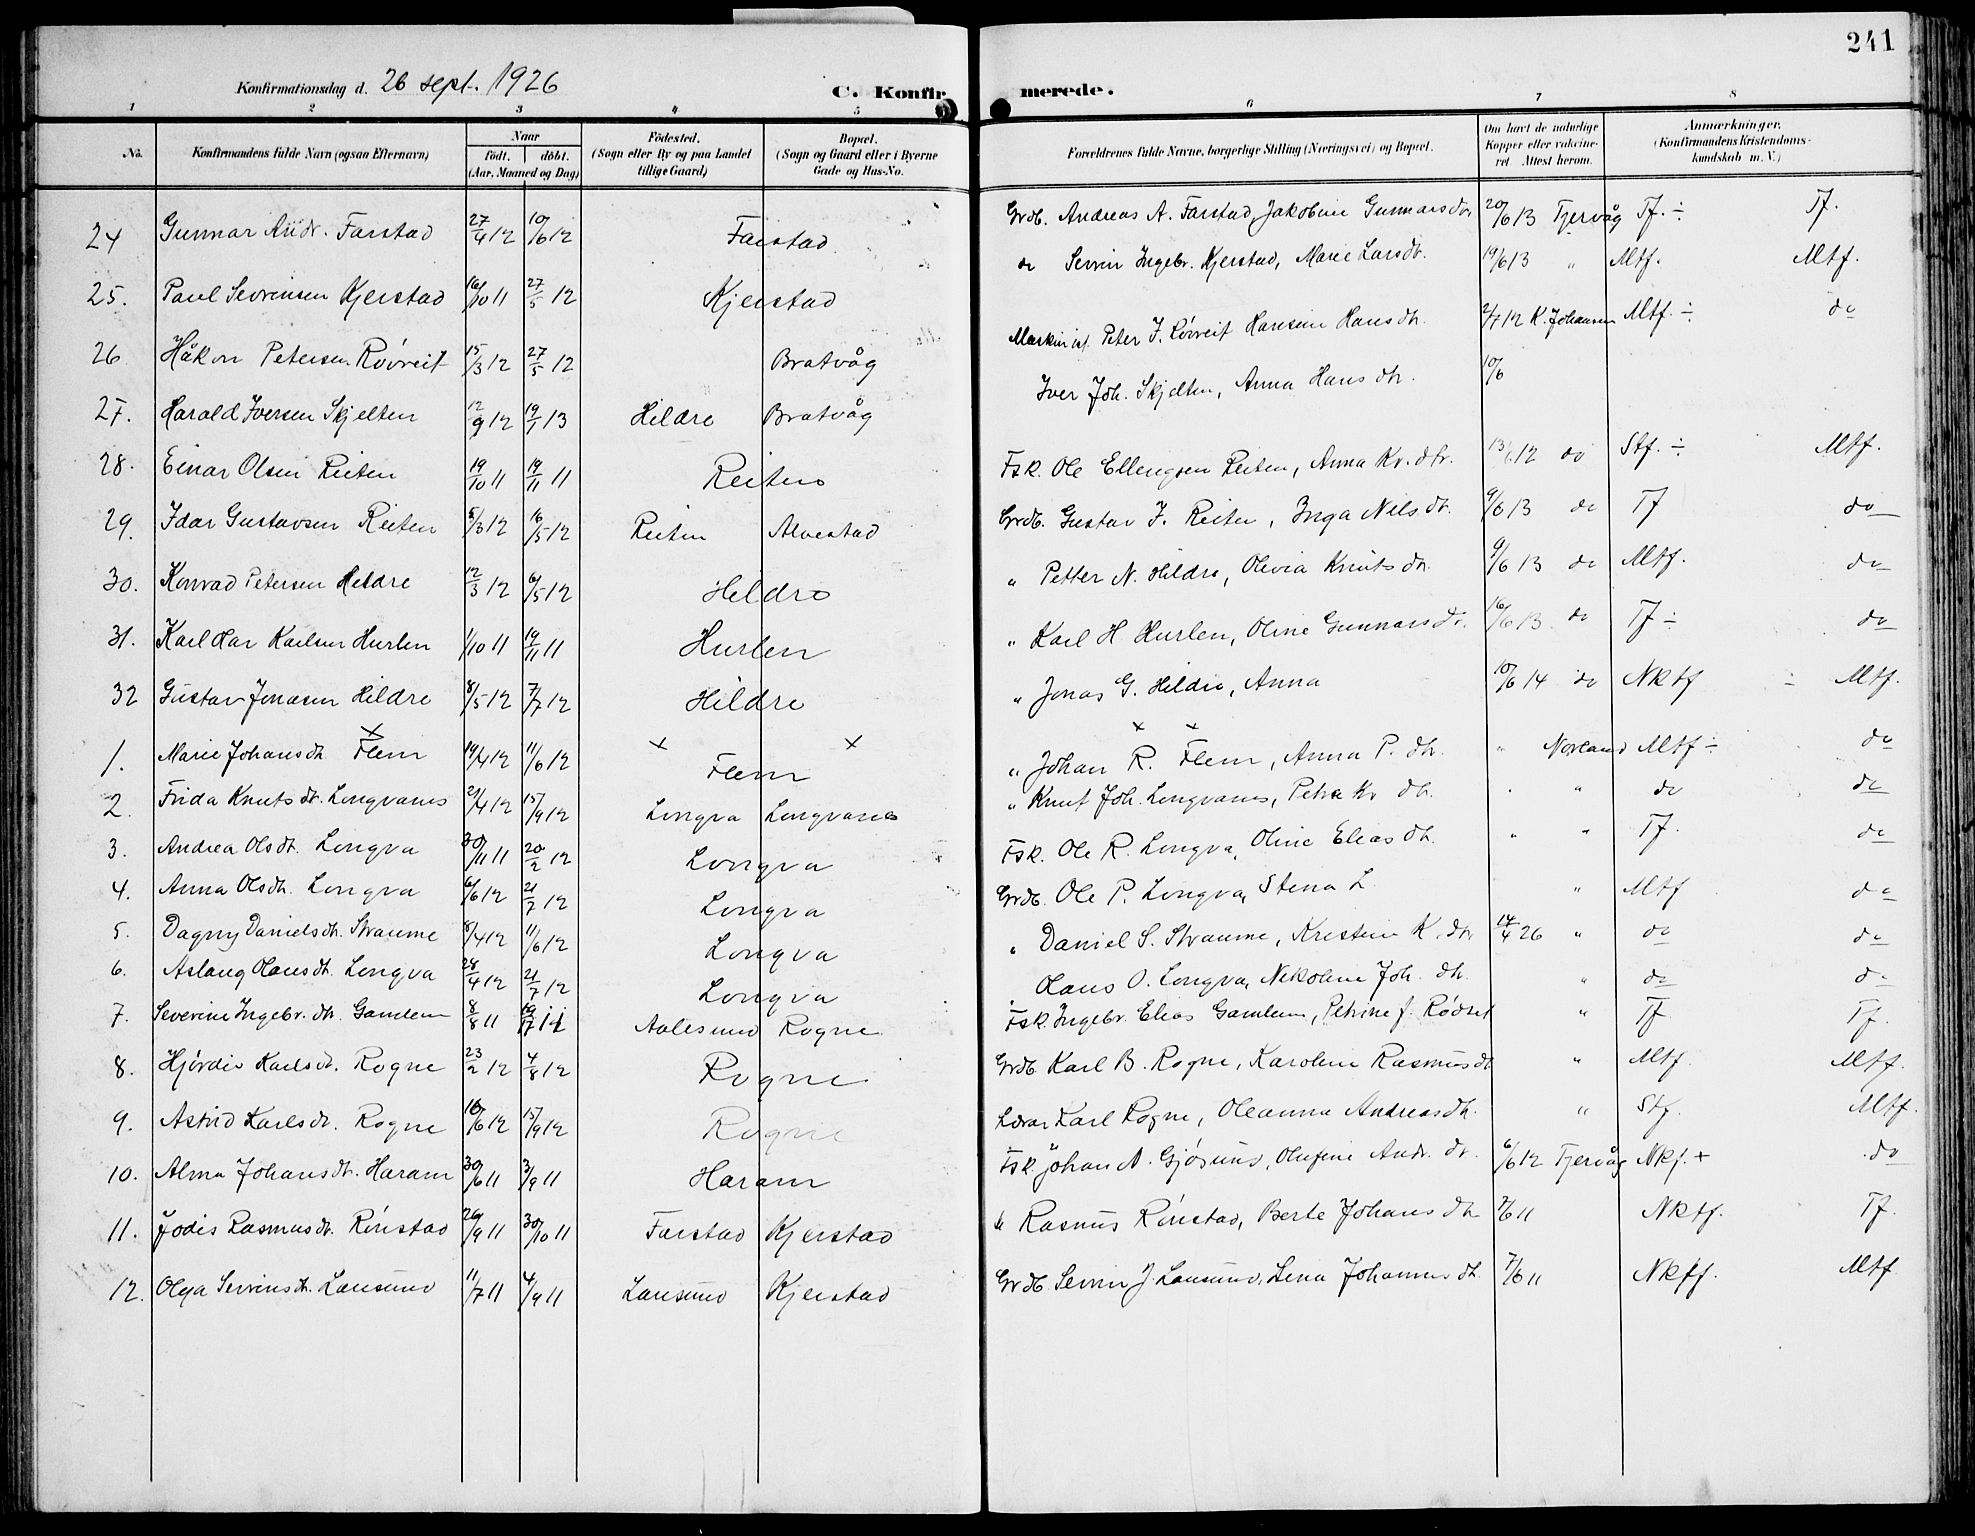 241
Konfirmationsdag d. 26 sept. 1926 C. Konfirmerede.
1 2 3 4 5 6 7 8
No. Konfirmandens fulde Navn (ogsaa Efternavn) Naar födt. döbt. (Aar, Maaned og Dag) Födested. (Sogn eller By og paa Landet tillige Gaard) Bopæl. (Sogn og Gaard eller i Byerne Gade og Hus-No. Forældrenes fulde Navne, borgerlige Stilling (Næringsvei) og Bopæl. Om havt de naturlige Kopper eller vakcineret. Attest herom. Anmærkninger. (Konfirmandens Kristendomskundskab m. V.)
24 Gunnar Andr. Farstad 27/4 12 10/6 12 Farstad Grdb. Andreas A. Farstad, Jakobine Gunnarsdtr 20/6 13 Fjervåg Tf. ÷ Tf.
25. Paul Sevrinsen Kjerstad 16/10 11 27/5 12 Kjerstad do Sevrin Ingebr. Kjerstad, Marie Larsdt. 19/6 13 " Mtf. Mtf.
26 Håkon Petersen Rövreit 15/3 12 27/5 12 Bratvåg Maskinist Peter J. Rövreit Hansine Hansdtr. 2/7 12 K. Johansen Mtf. ÷ do
27. Harald Iversen Skjelten 12/9 12 19/1 13 Hildre Bratvåg Iver Joh. Skjelten, Anna Hansdtr. 10/6
28. Einar Olsen Reiten 19/10 11 19/11 11 Reiten Fsk. Ole Ellengsen Reiten, Anna Kr. dtr. 12 do Stf. ÷ Mtf.
29. Idar Gustavsen Reiten 5/3 12 16/5 12 Reiten Alvestad Grdb. Gustav J. Reiten, Inga Nilsdt. 9/6 13 do Tf do
30. Konrad Petersen Hildre 12/3 12 6/5 12 Hildre " Petter N. Hildre, Olivia Knutsdtr. 9/6 13 do Mtf. do
31. Karl Har Karlsen Hurlen 1/10 11 19/11 11 Hurlen " Karl H Hurlen, Oline Gunnarsdtr. 16/6 13 do Tf ÷ do
32 Gustav Jonasen Hildre 8/5 12 7/7 12 Hildre " Jonas G. Hildre, Anna 10/6 14 do Nktf ÷ Mtf.
1. Marie Johansdtr Flem 19/4 12 11/6 12 Flem " Johan R. Flem, Anna P. dtr. " Norland Mtf ÷ do
2. Frida Knutsdtr. Longvanes 21/4 12 15/9 12 Longva Longvanes " Knut Joh. Longvanes, Petra Kr dtr. " " do do
3. Andrea Olsdtr. Longva 30/11 11 20/2 12 Longva Fsk. Ole R. Longva, Oline Eliasdtr. " " Tf. do
4. Anna Olsdtr. Longva 6/6 12 21/7 12 Longva Grdb. Ole P. Longva, Stina L. " Mtf do
5. Dagny Danielsdtr. Straume 8/4 12 11/6 12 Longva " Daniel S. Straume, Kristine K. dtr 14/4 26 " do do
6. Aslaug Hansdtr. Longva 28/4 12 21/7 12 Longva Hans O. Longva, Nikoline Joh. dtr. " do do
7. Severine Ingebr. dtr. Gamlem 8/8 11 11 Aalesund Rogne Fsk. Ingebr. Elias Gamlem, Petrine J. Rödset " Tf Tf.
8. Hjördis Karlsdt. Rogne 23/2 12 4/8 12 Rogne Grdb Karl B. Rogne, Karoline Rasmusdtr " Mtf. Mtf.
9. Astrid Karlsdt. Rogne 10/6 12 15/9 12 Rogne Lærar Karl Rogne, Oleanna Andreasdtr. " Stf. Mtf.
10. Alma Johansdtr. Haram 30/6 11 3/9 11 Haram Fsk. Johan A. Gjøsund, Olufine Andr. dtr. 6/6 12 Fjervåg Nkf. + do
11. Jodis Rasmusdtr. Rönstad 26/9 11 30/10 11 Farstad Kjerstad " Rasmus Rönstad, Berte Johansdtr 7/6 11 Nktf. Tf.
12. Olga Sevrinsdtr. Lausund 11/7 11 4/9 11 Lausund Kjerstad Grdb. Sevrin J. Lausund, Lina Johannesdtr. 7/6 11 Nktf. Mtf.